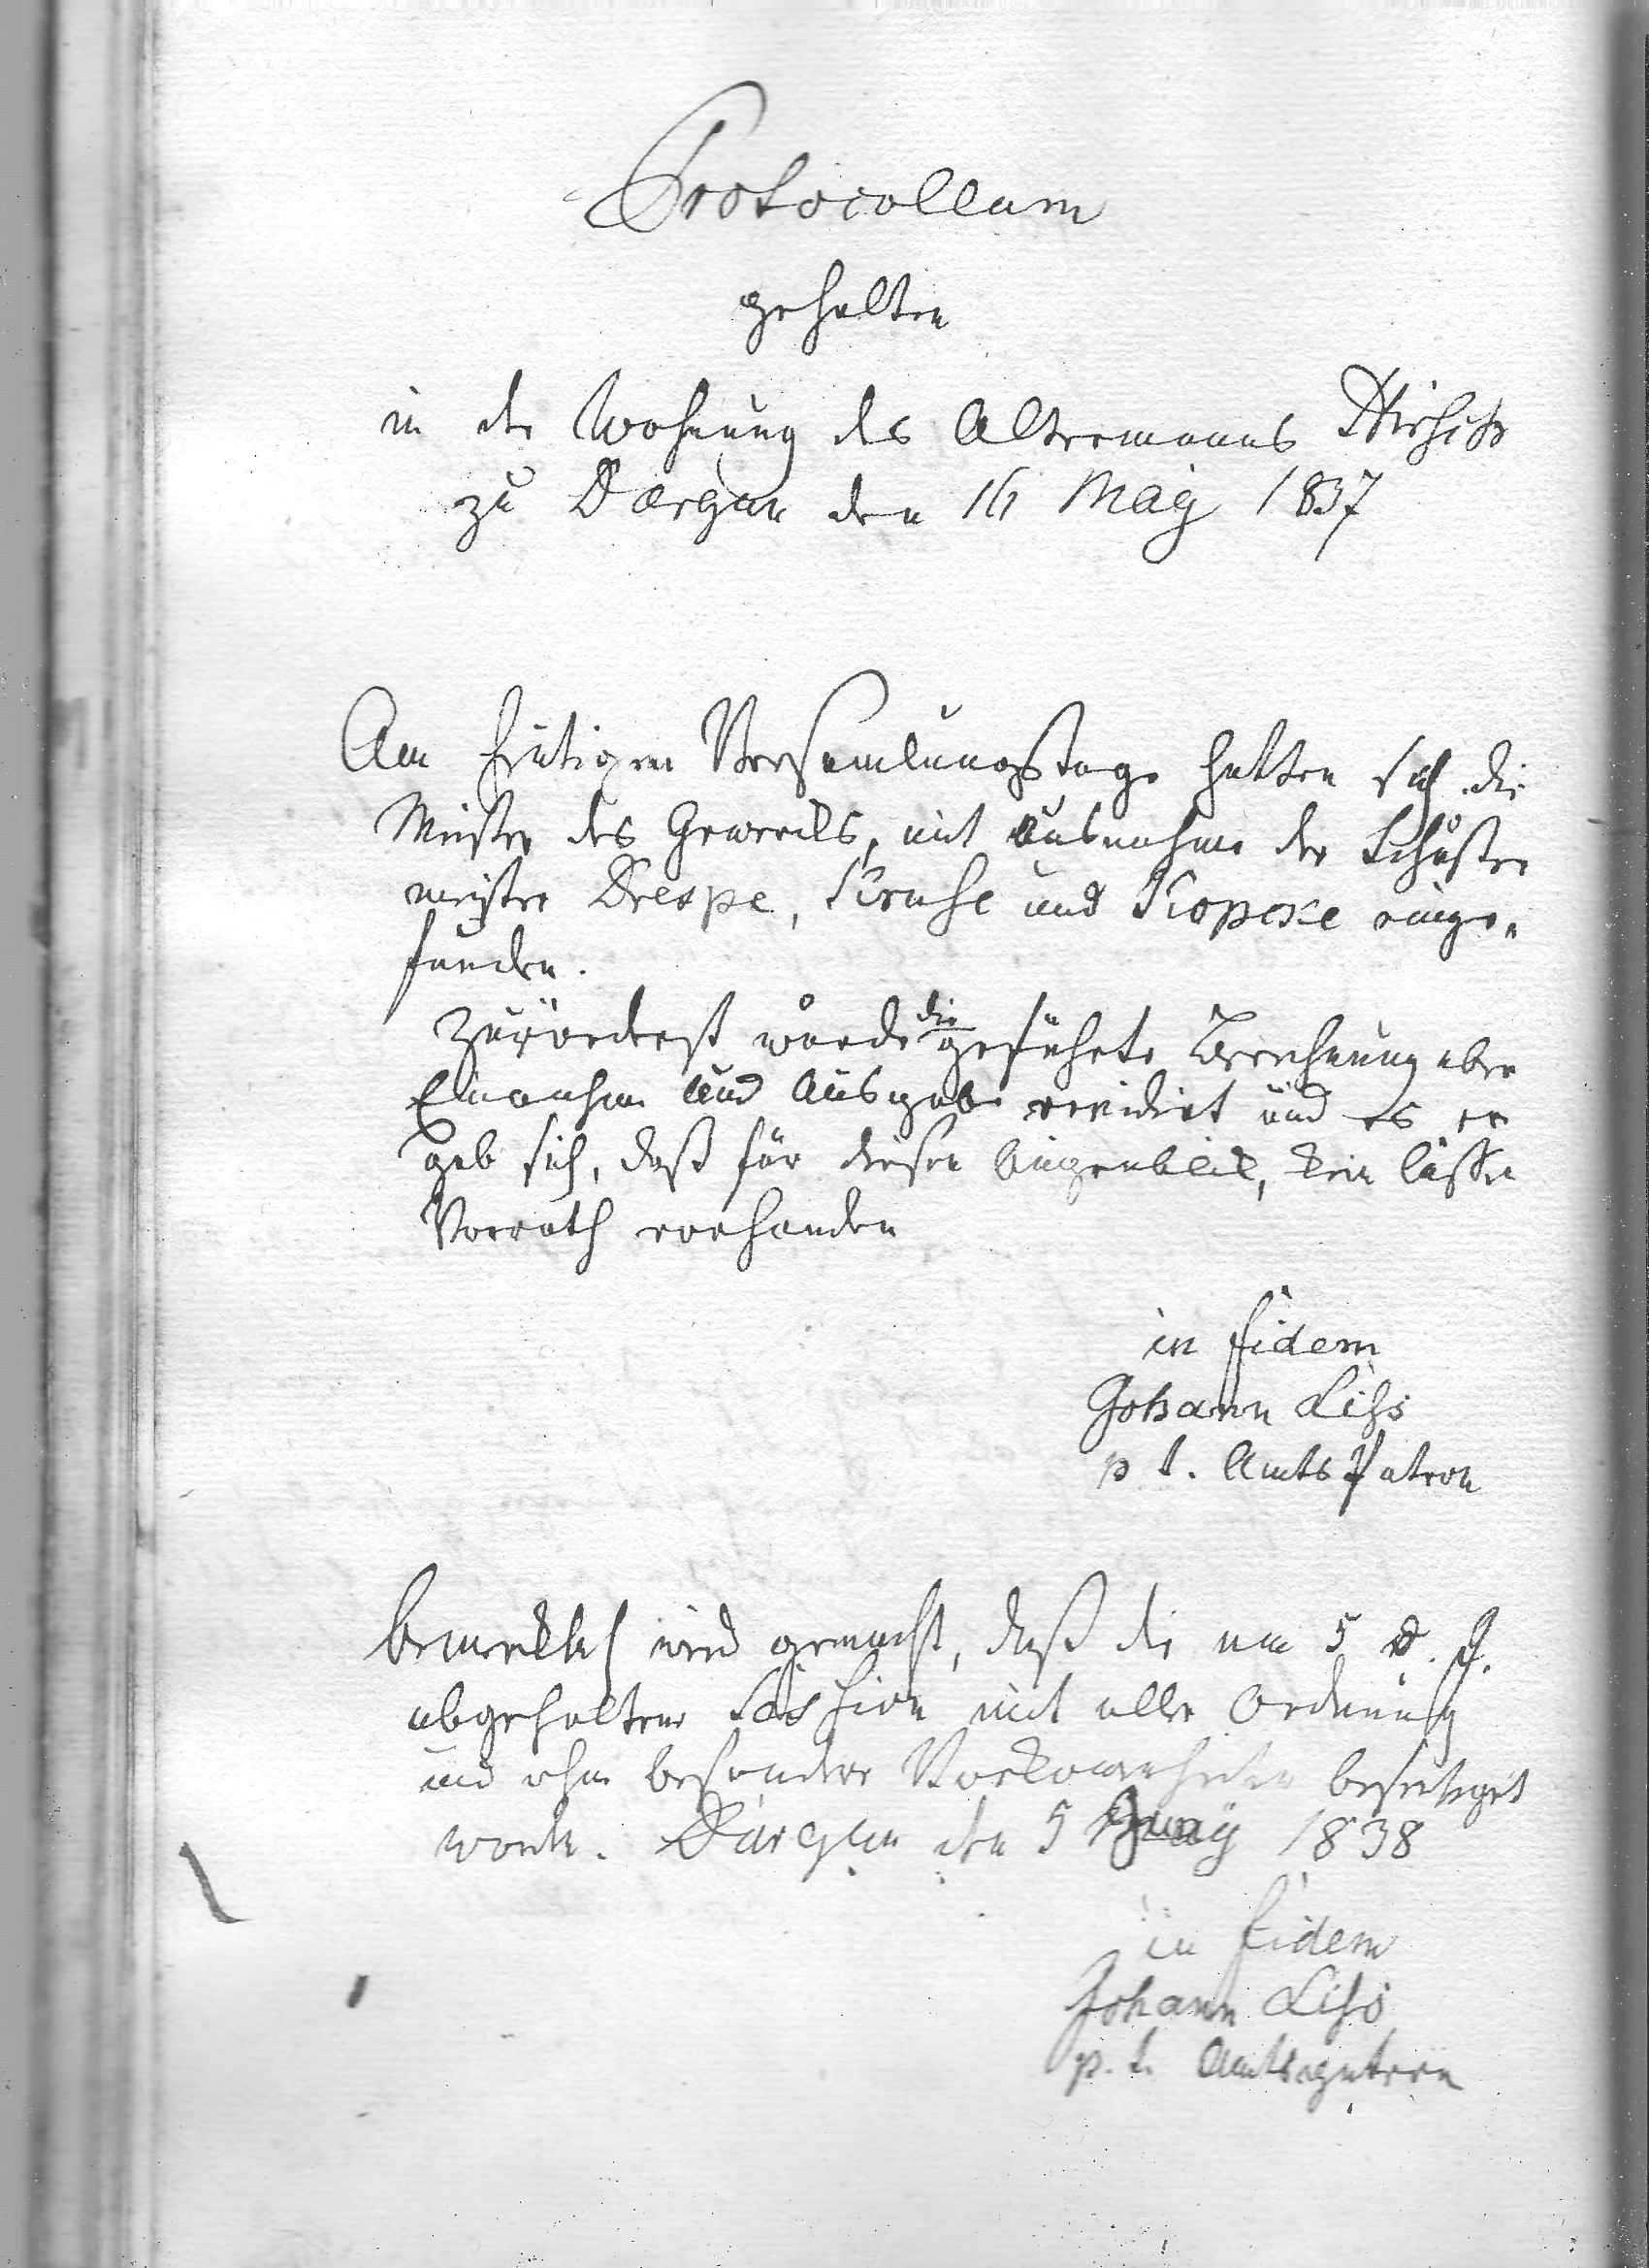 Protocollum
gehalten
in der Wohnung des Altermanns
zu Dargun den 16 May 1837
Am heutigen Versamlungstage hatten sich die
Meister des Gewercks, mit Ausnahme der Schuster
meister Drespe, Kruse und Kopcke einge„
funden.
Zuvörderst wurde die geführte Berechnung uber
Einnahme und Ausgabe revidirt und es er
gab sich, daß für diesen Augenblick, kein Cassen
Vorrath vorhanden
in fidem
Johann
p t. Amts Patron
wird gemacht, daß die am 5 d. J.
abgehaltene Session mit aller Ordnung
und ohne besondere Vorkommenheiten beseitiget
worden. Dargun den 5 Juny 1838
in fidem
Johann
p. t. Amtspatron